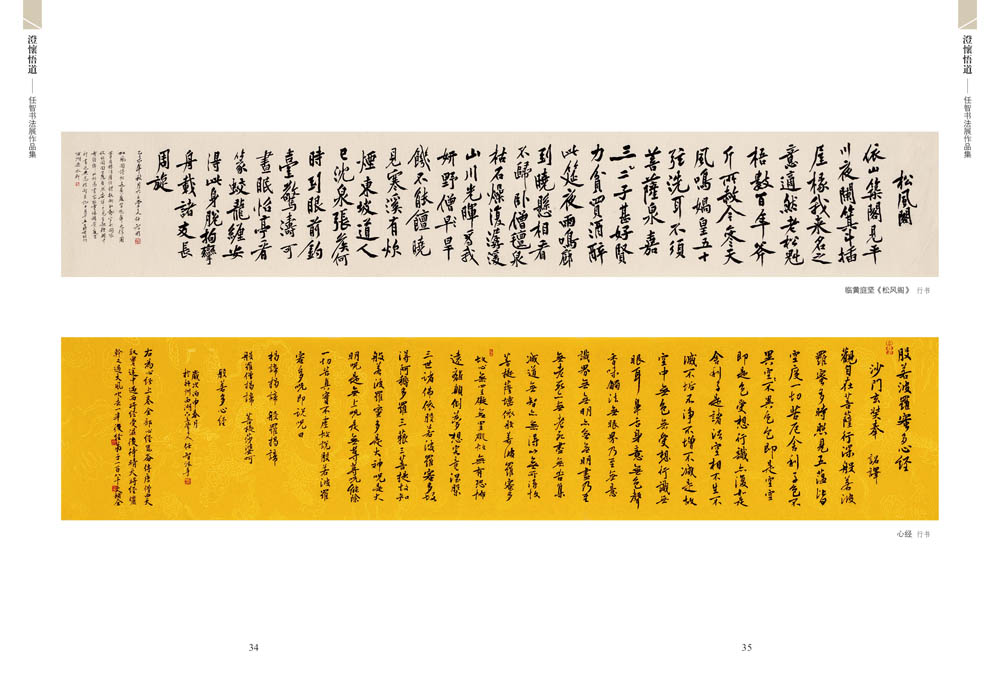 澄懷悟道——任智书法展作品集
澄懷悟道——任智书法展作品集
松風閣
依山築閣見平
川夜闌箕斗插
屋椽我來名之
意適然老松魁
梧數百年斧
斤所赦今參天
風鳴媧皇五十
弦洗耳不須
菩薩泉嘉
三二子甚好賢
力貧買酒醉
此筵夜雨鳴廊
到曉懸相看
不歸臥僧氈泉
枯石燥復潺湲
山川光暉為我
妍野僧早旱
饑不能饘曉
見寒溪有炊
煙東坡道人
已沈泉張侯何
時到眼前釣
臺驚濤可
晝眠怡亭看
篆蛟龍纏安
得此身脫拘攣
舟載諸友長
周旋
临黄庭坚《松风阁》 行书
般若波羅蜜多心經
沙门玄奘奉 詔譯
觀自在菩薩行深般若波
羅蜜多時照見五蕴皆
空度一切苦厄舍利子色不
異空空不異色色即是空空
即是色受想行識亦復如是
舍利子是諸法空相不生不
滅不垢不淨不增不減是故
空中無色無受想行識無
眼耳鼻舌身意無色聲
香味觸法無眼界乃至無意
識界無無明亦無無明盡乃至
無老死亦無老死盡無苦集
滅道無智亦無得以無所得故
菩提薩埵依般若波羅蜜多
故心無罣礙無罣礙故無有恐怖
遠離顛倒夢想究竟涅槃
三世諸佛依般若波羅蜜多故
得阿耨多羅三藐三菩提故知
般若波羅蜜多是大神咒是大
明咒是無上咒是無等等咒能除
一切苦真實不虛故說般若波羅
蜜多咒即說咒曰
揭諦揭諦 般羅揭諦
般羅僧揭諦 菩提莎婆呵
般若多心經
心经 行书
34
35